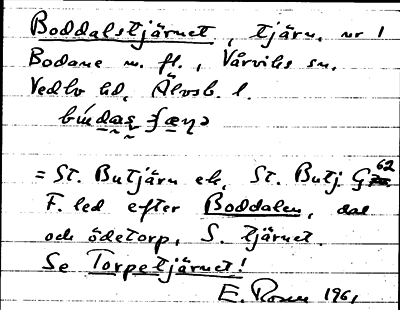 Boddalstjärnet, tjärn, nr 1
Bodane m. fl., Vårviks sn.
Vedbo hd, Älvsb. l.
= St. Butjärn ek, St. Butj. G 62
F. led efter Boddalen, dal
och ödetorp, S. tjärnet.
Se Torpetjärnet!
E. Rosen 1961